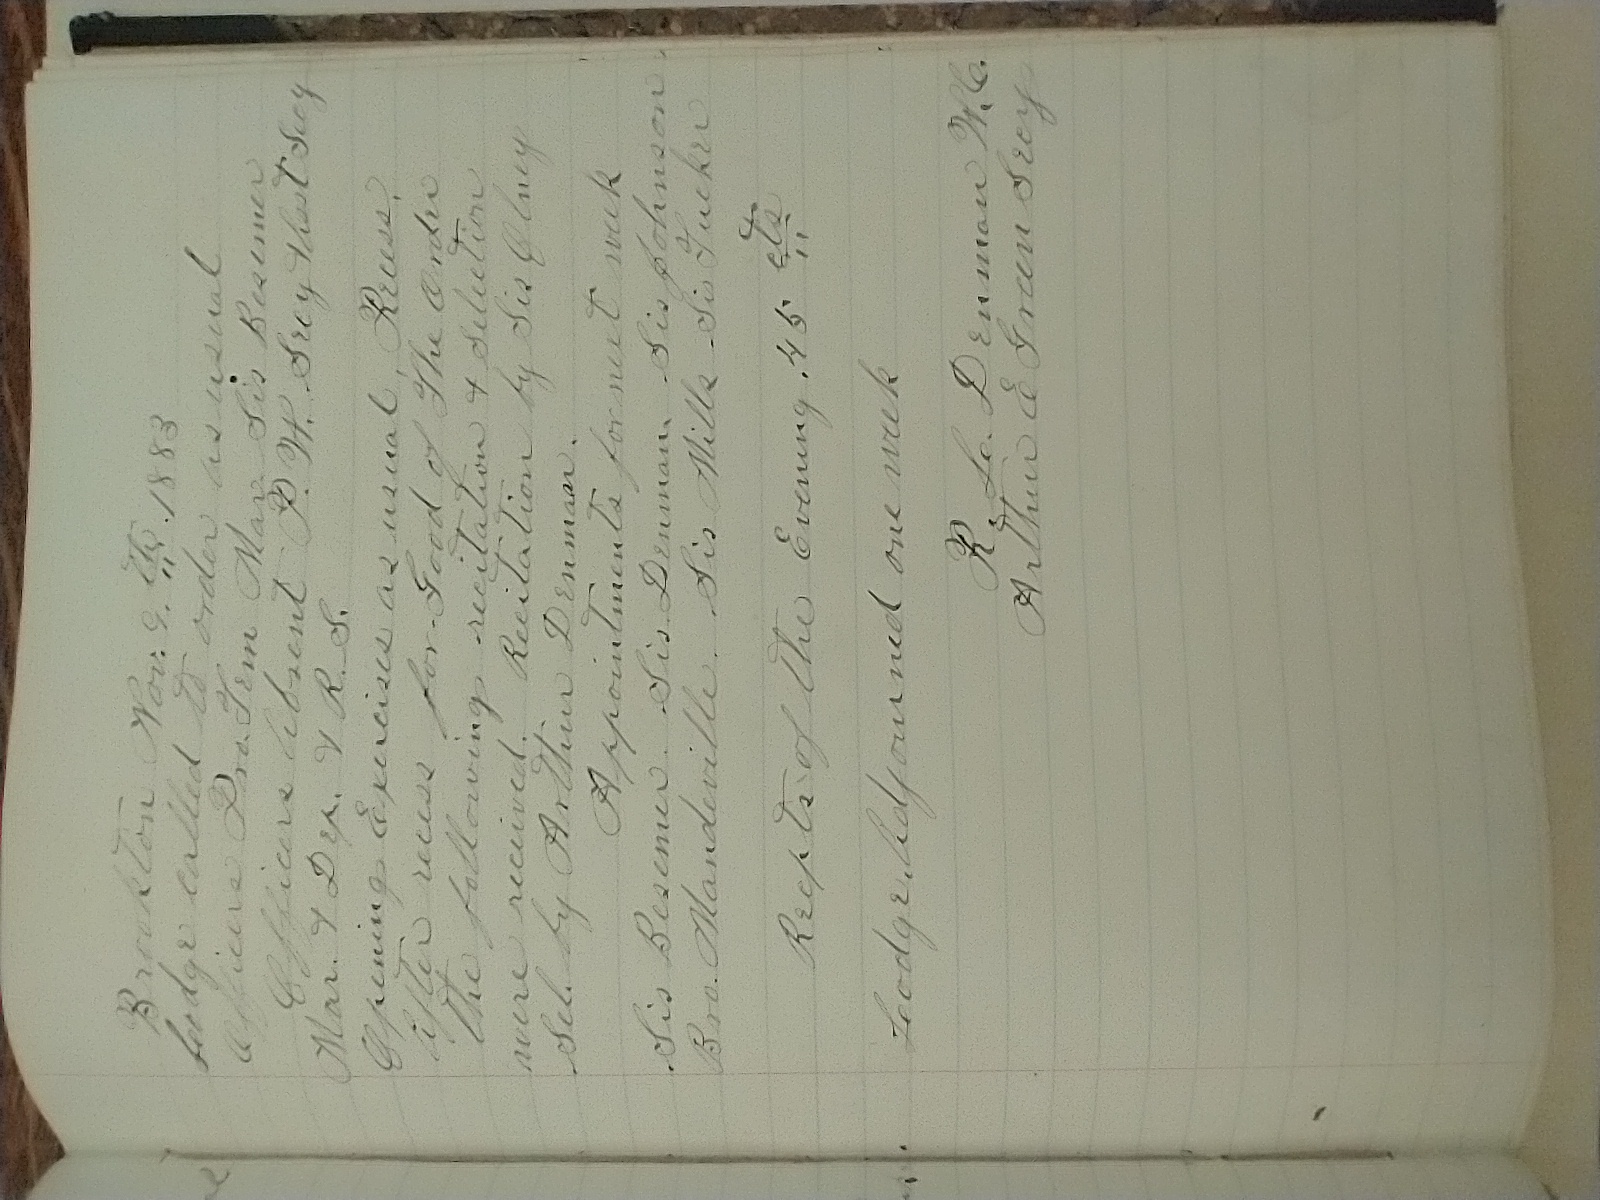 Brookton Nov. 9.th .1883
Lodge called to order as usual
Officers Pro. Tem Mar. Sis Besemer
Officers Absent P. W. Srcy + Asst Secy
Mar. + Dep. + R. S.
Opening Exercises as usual, Recess.
After recess for Good of The Order
the following recitation + Selection
were received. Recitation by Sis Olney
Sel. by Arthur Denman.
Appointments for next week
Sis Besemer. Sis. Denman. Sis Johnson
Bro. Mandeville. Sis Mills Sis Tucker
Recpts of the Evening .45 cts
Lodge Adjourned one week
R. L. Denman W.C.
Arthur E Green Srcy